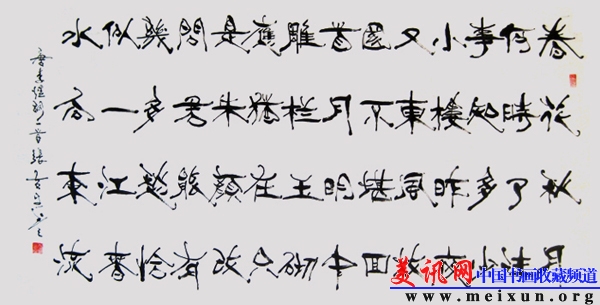 春花秋月
何時了往
事知多少
小樓昨夜
又東風故
國不堪回
首月明中
雕栏玉砌
應猶在只
是朱顏改
問君能有
幾多愁恰
似一江春
水向東流
一首張
美讯网 中国书画收藏网
www.meixun.org